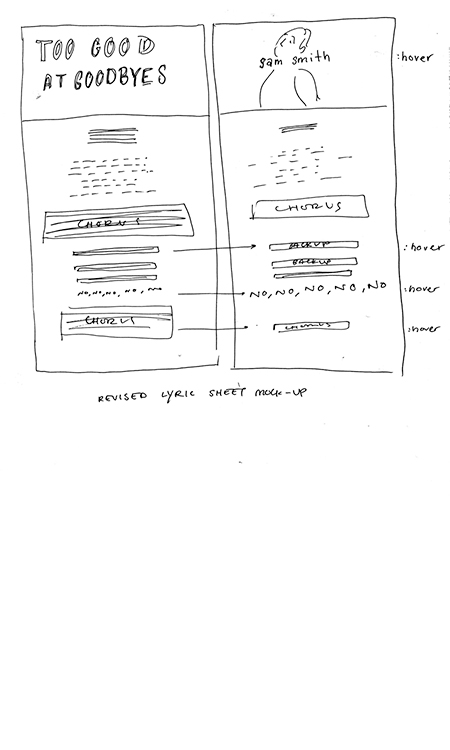 TOO GOOD
AT GOODBYES
CHORUS
NO, NO, NO, NO, NO
CHORUS
sam smith
:hover
CHORUS
BACKUP
:hover
BACKUP
NO, NO, NO, NO, NO
:hover
CHORUS
:hover
REVISED LYRIC SHEET MOCK-UP